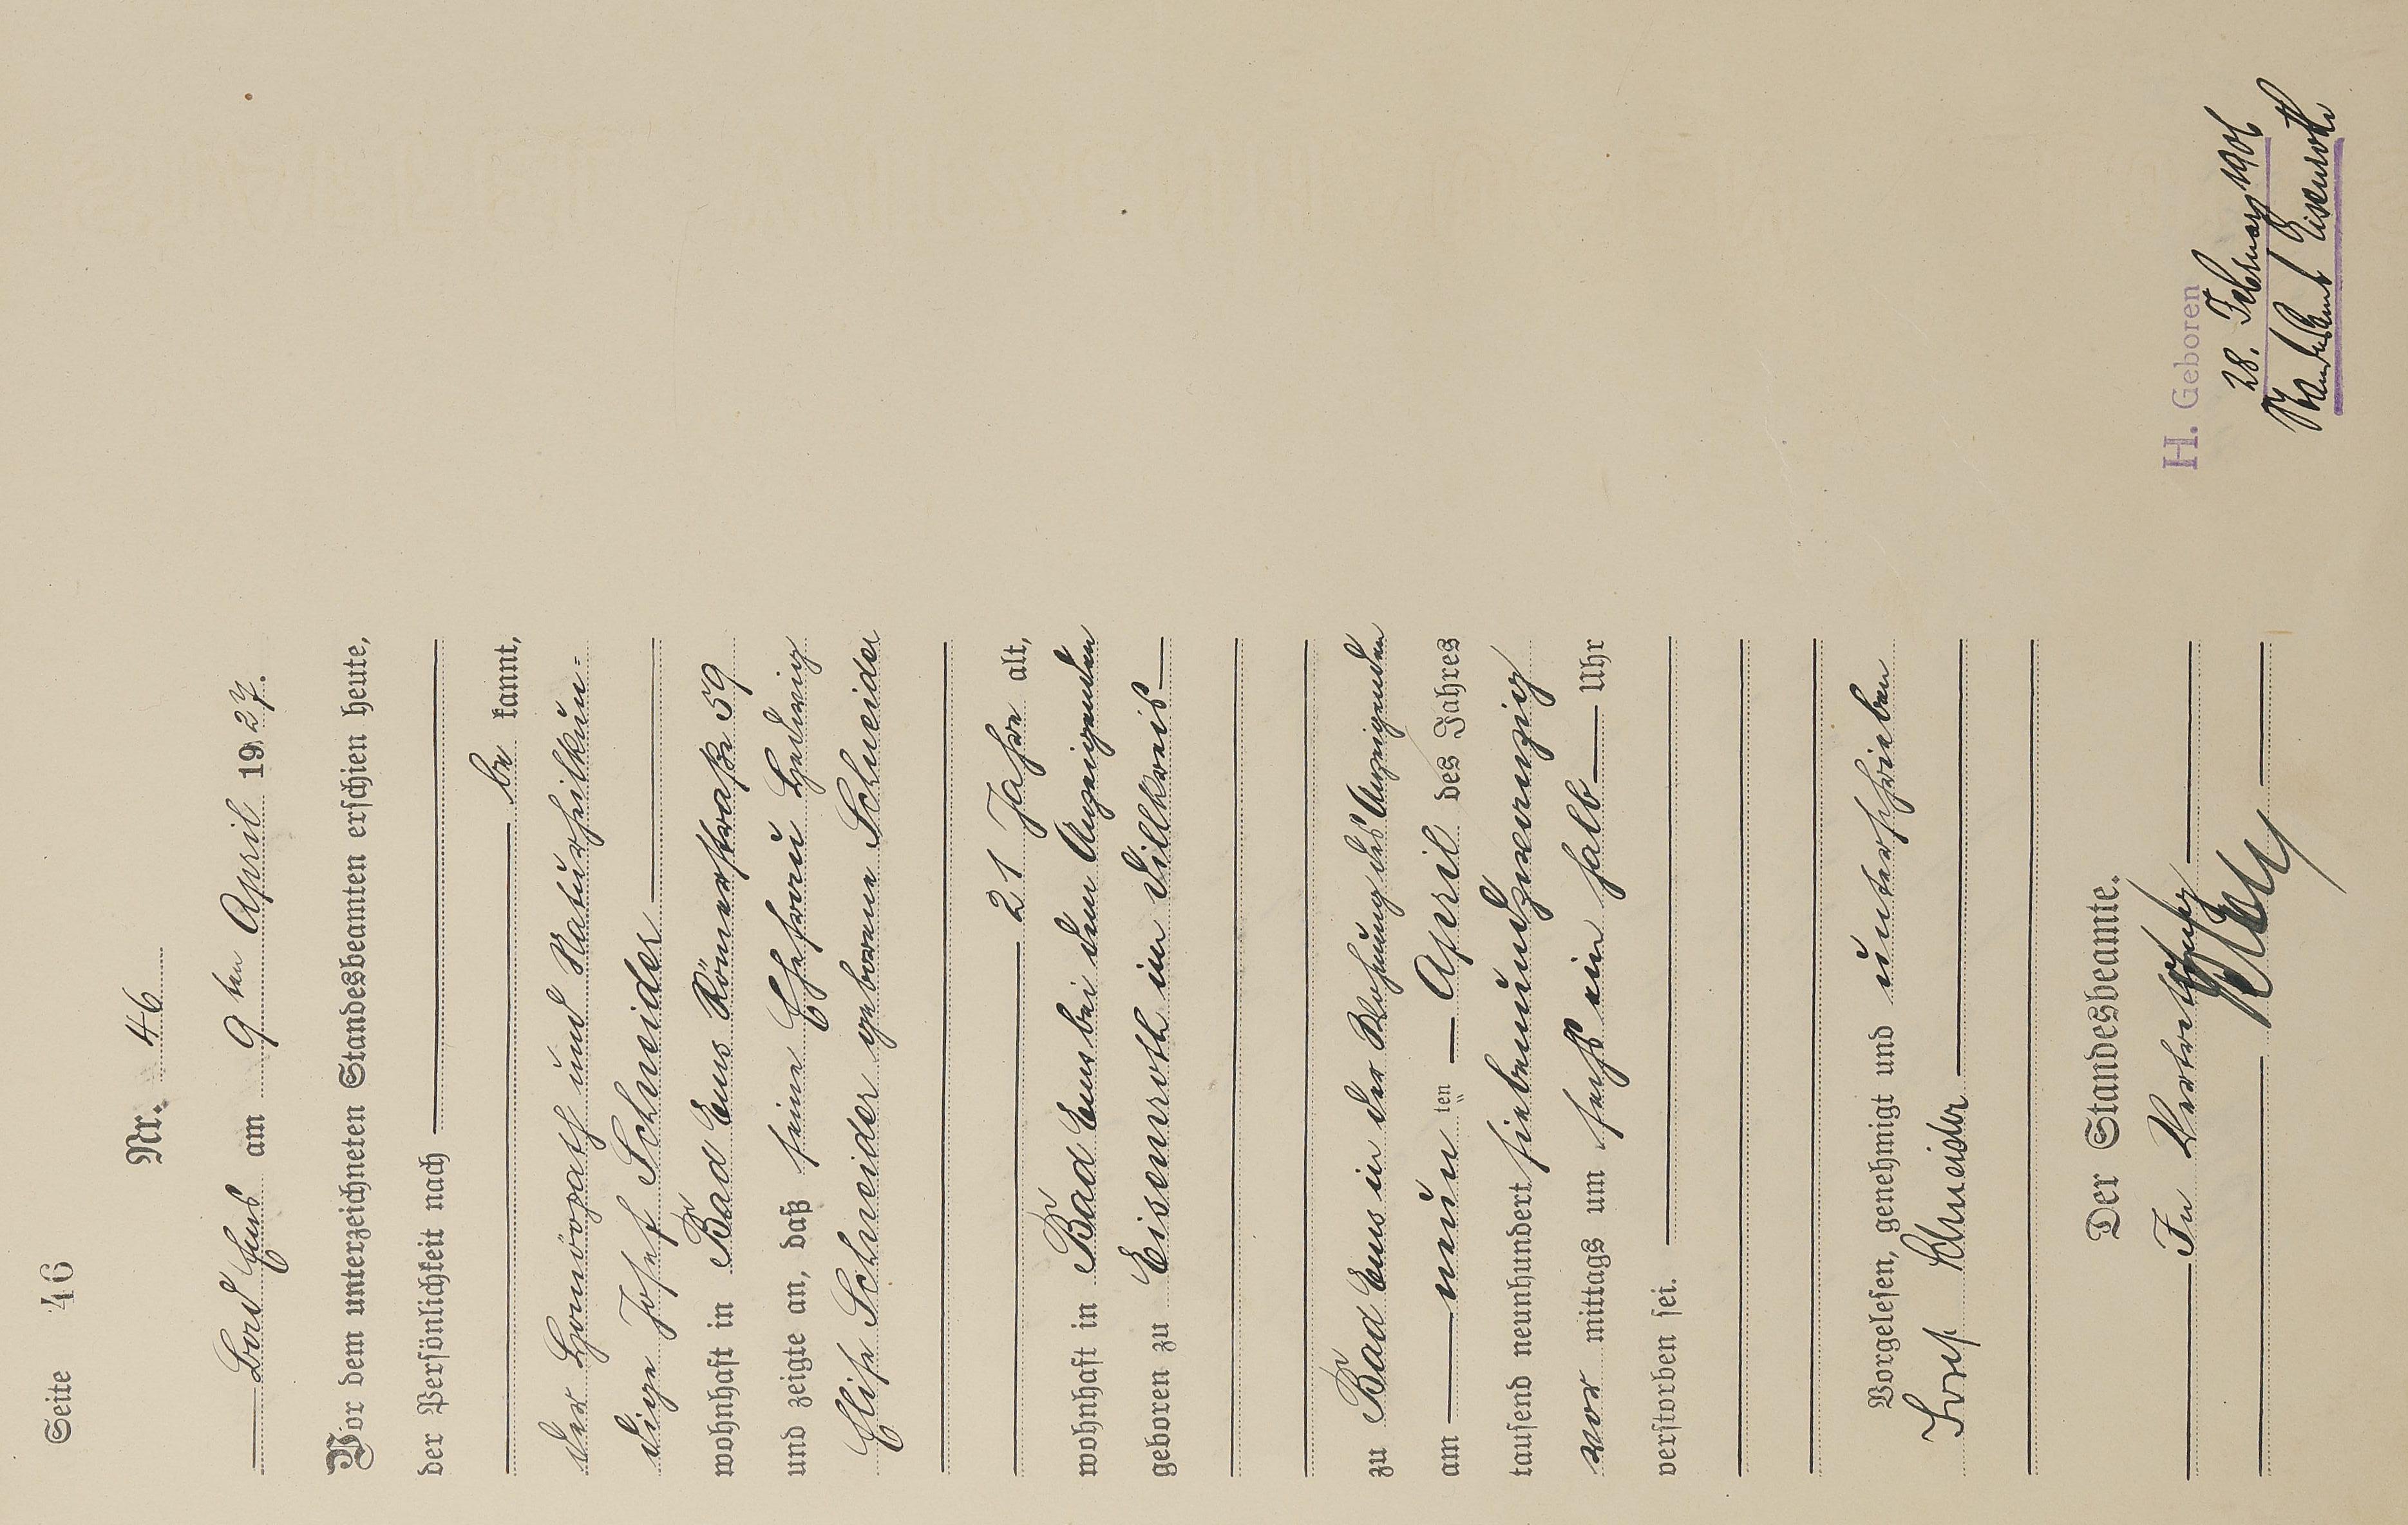 Seite 46
Nr. 46
Bad Ems am 9ten April 1927.
Vor dem unterzeichneten Standesbeamten erschien heute,
der Persönlichkeit nach
be kannt,
der Homöopath und Naturheilkun-
dige Josef Schneider
wohnhaft in Bad Ems Römerstraße 59
und zeigte an, daß seine Ehefrau Hedwig
Elise Schneider geborene Schneider
21 Jahre alt,
wohnhaft in Bad Ems bei dem Anzeigenden
geboren zu Eisemroth im Dillkreis
zu Bad Ems in der Wohnung des Anzeigenden
am neun ten April des Jahres
tausend neunhundert siebenundzwanzig
vor mittags um sechs ein halb Uhr
verstorben sei.
Vorgelesen, genehmigt und unterschrieben
Josef Schneider
Der Standesbeamte.
In Vertretung
H. Geboren
28. Februar 1906
Standesamt Eisemroth